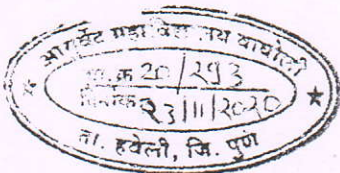 आयुर्वेद महाविद्यालय वाघोली
जा. क्र 20/293
दिनांक 23/11/2020
ता. हवेली, जि. पुणे